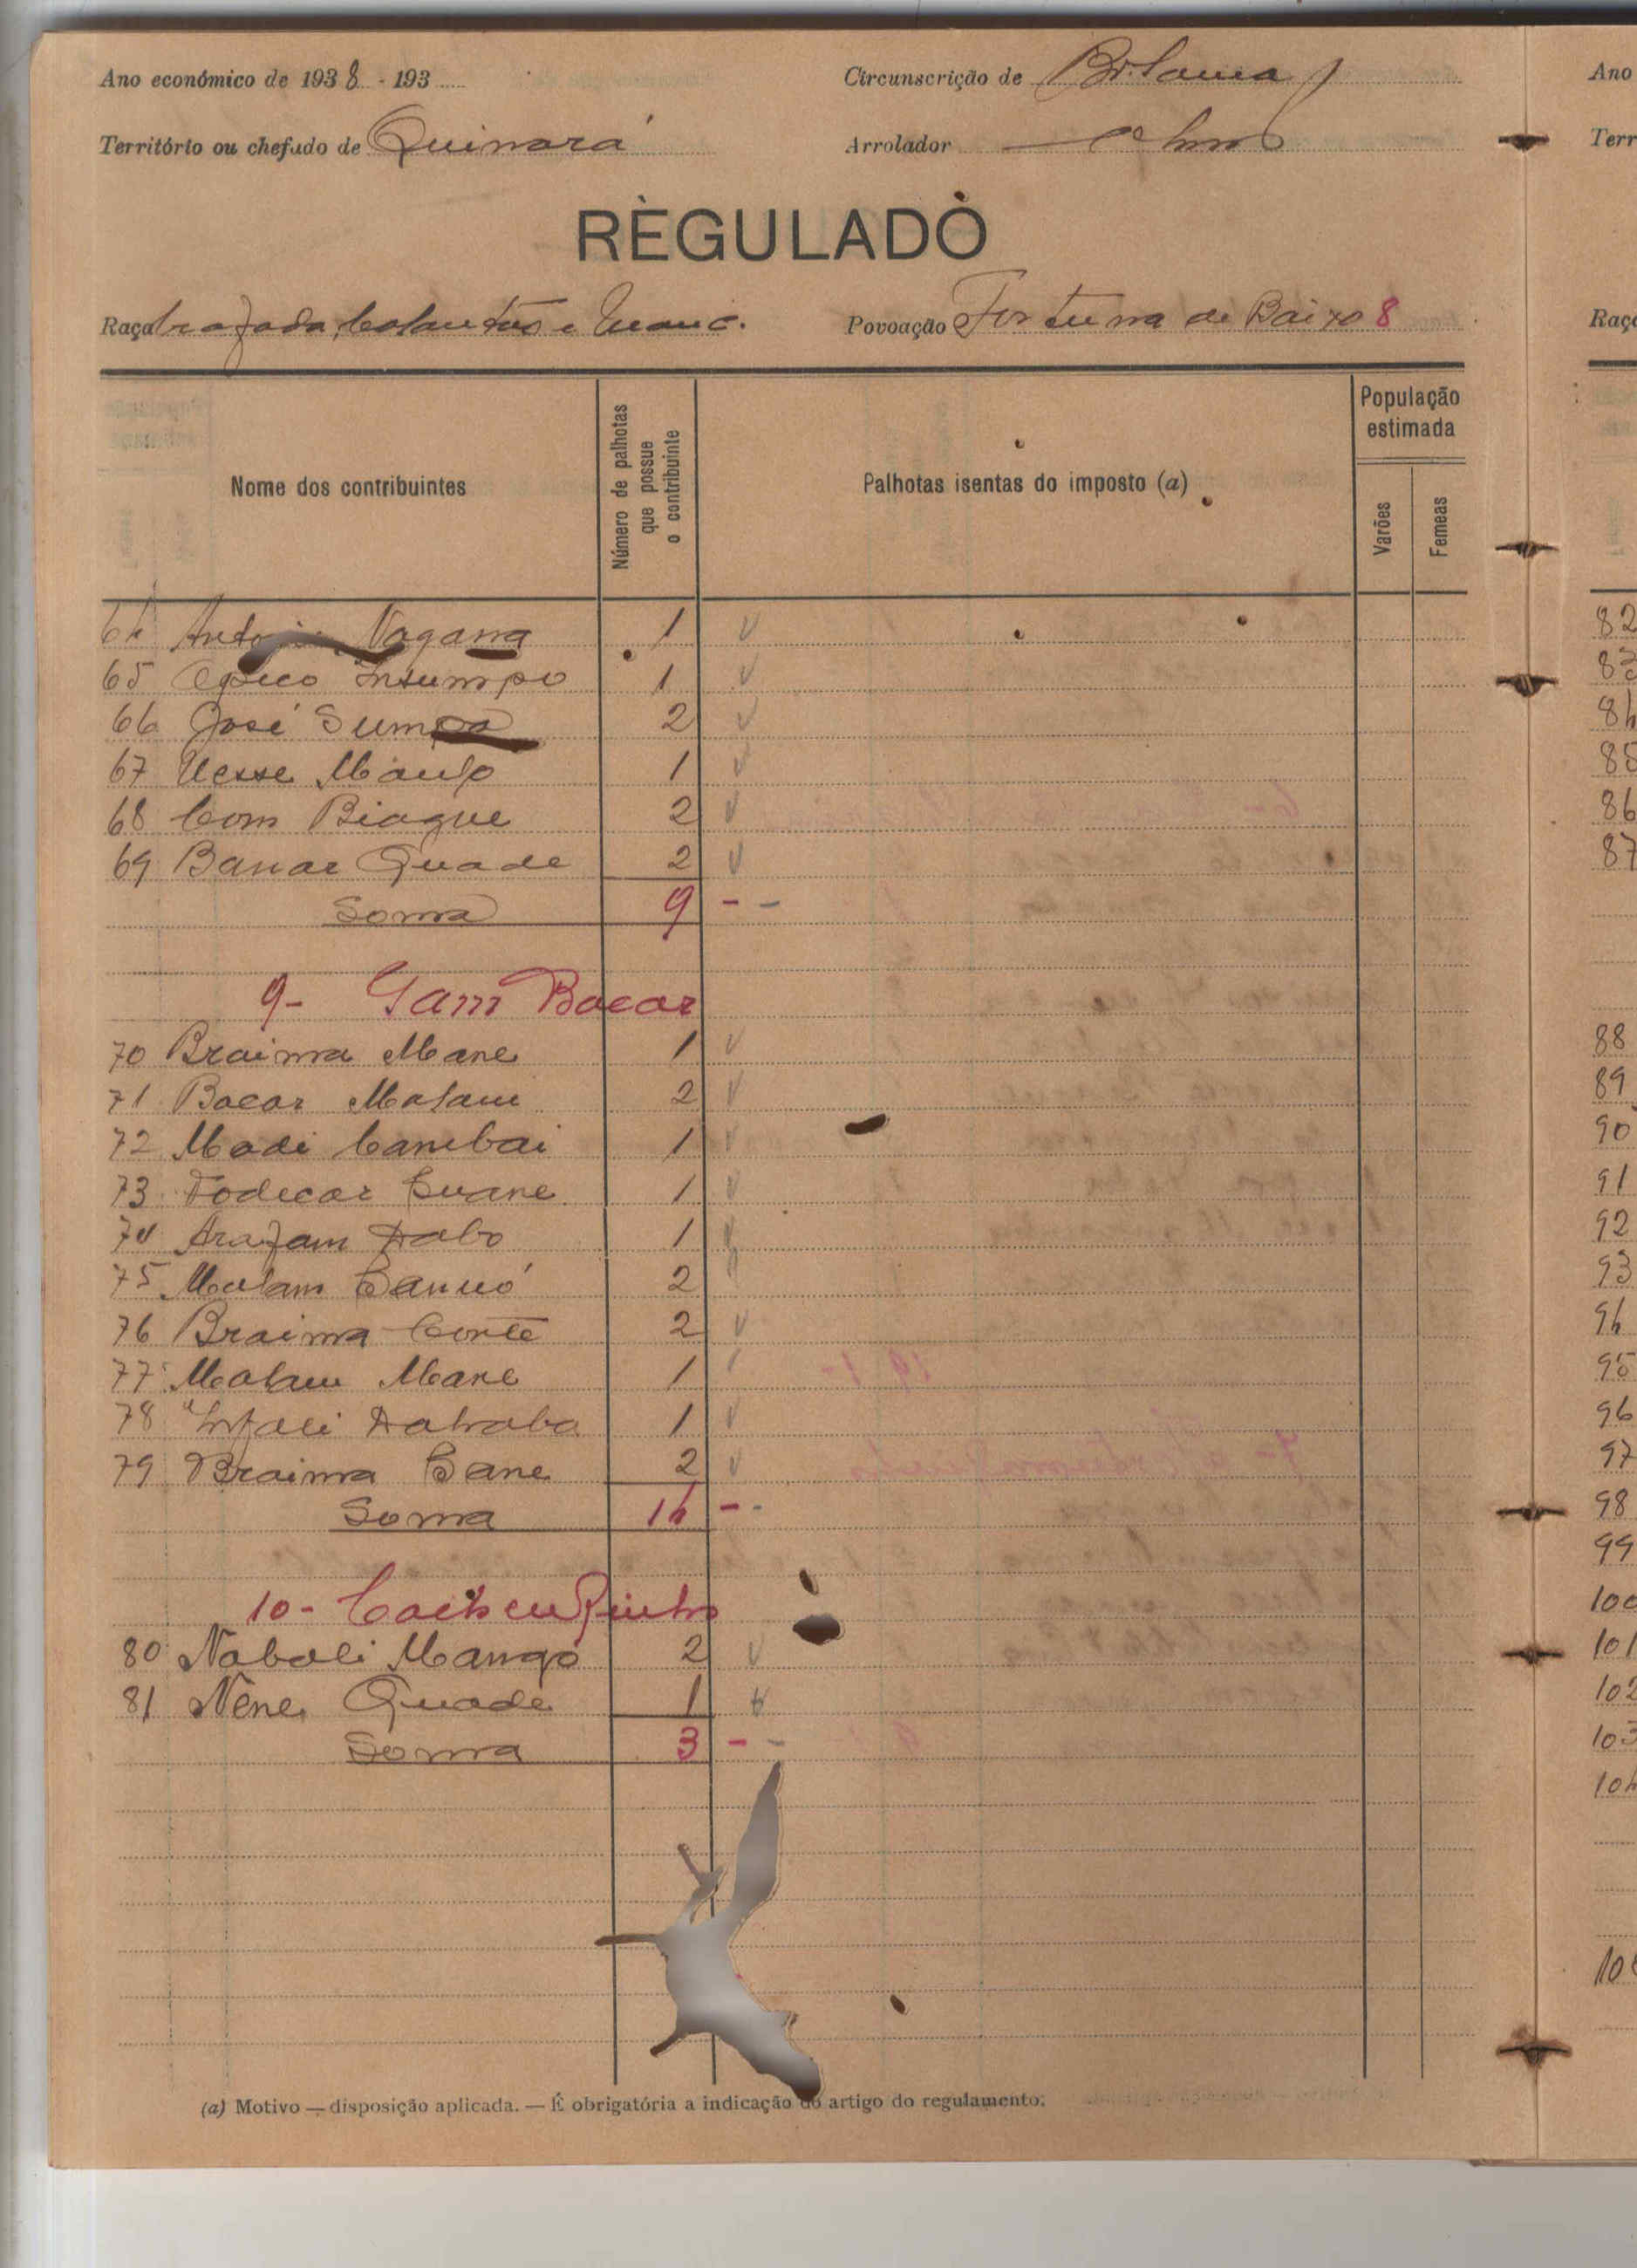 Ano económico de 1938 - 193
Circunscrição de Bolama
Território ou chefado de Quinará
Arrolador
REGULADO
Raça e Manc.
Povoação Fortuna de Baixo 8
Nome dos contribuintes
Número de palhotas que possue o contribuinte
Palhotas isentas do imposto (a)
População estimada
Varões
Femeas
64 Nagana 1
65 Insumpo 1
66 José Sumpa 2
67 1
68 Com Biague 2
69 Quade 2
Soma 9 - -
9- Gam Bacar
70 Braima Mane 1
71 Bacar Malam 2
72 Madi Cambai 1
73 1
74 Arafam Dabo 1
75 Malam 2
76 Braima Conté 2
77 Malam Mane 1
78 Infali 1
79 Braima Sane 2
Soma 14 - -
10-
80 Nabali Mango 2
81 Nene Quade 1
Soma 3 - -
(a) Motivo — disposição aplicada. — É obrigatória a indicação do artigo do regulamento.
Ano
Terr
Raç
82
83
84
85
86
87
88
89
90
91
92
93
94
95
96
97
98
99
100
101
102
103
104